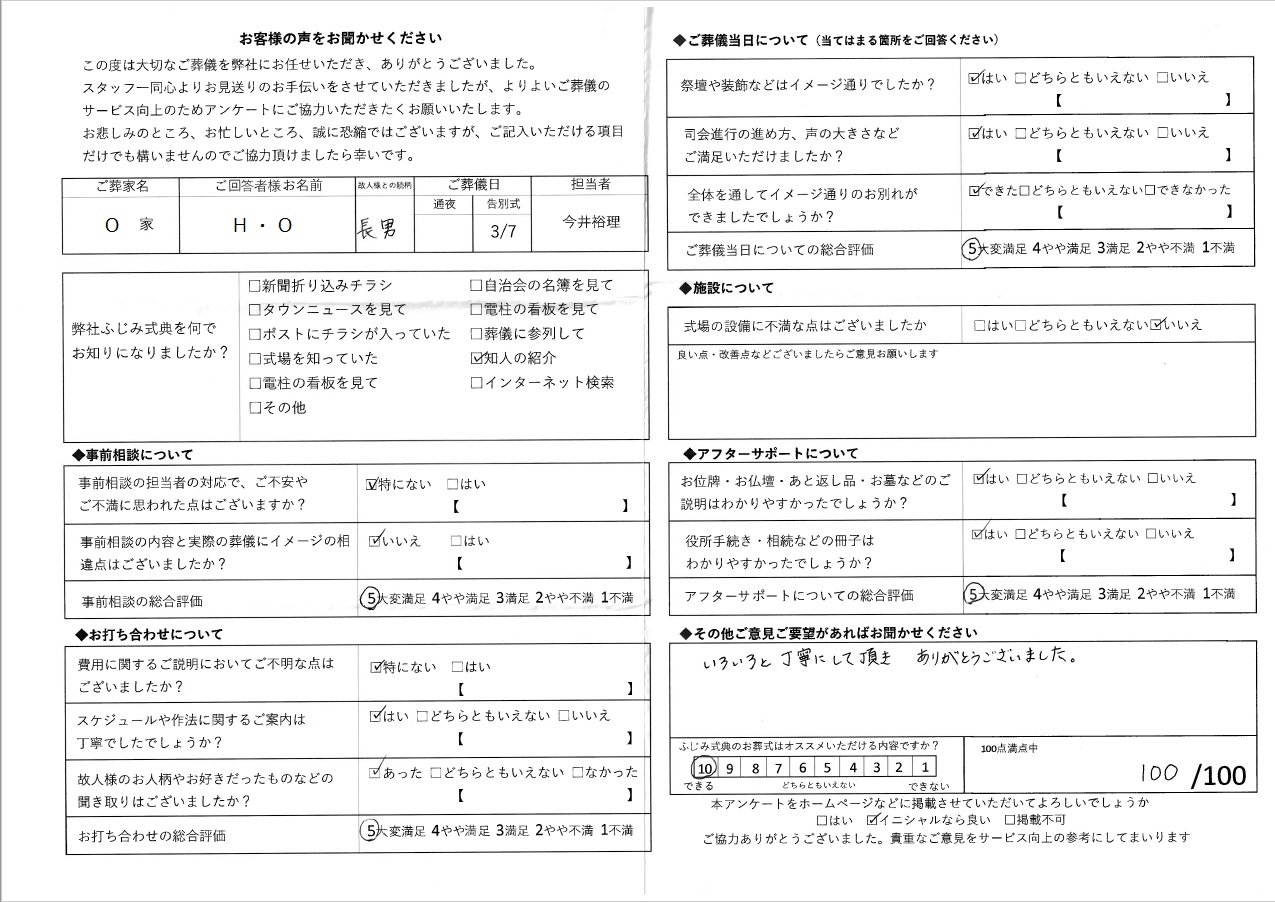 お客様の声をお聞かせください
この度は大切なご葬儀を弊社にお任せいただき、ありがとうございました。
スタッフ一同心よりお見送りのお手伝いをさせていただきましたが、よりよいご葬儀の
サービス向上のためアンケートにご協力いただきたくお願いいたします。
お悲しみのところ、お忙しいところ、誠に恐縮ではございますが、ご記入いただける項目
だけでも構いませんのでご協力頂けましたら幸いです。
ご葬家名 ご回答者様お名前 故人様との続柄 ご葬儀日 担当者
通夜 告別式
O 家 H・O 長男 3/7 今井裕理
弊社ふじみ式典を何で
お知りになりましたか？
☐新聞折り込みチラシ ☐自治会の名簿を見て
☐タウンニュースを見て ☐電柱の看板を見て
☐ポストにチラシが入っていた ☐葬儀に参列して
☐式場を知っていた ☑知人の紹介
☐電柱の看板を見て ☐インターネット検索
☐その他
◆事前相談について
事前相談の担当者の対応で、ご不安や
ご不満に思われた点はございますか？
☑特にない ☐はい
【 】
事前相談の内容と実際の葬儀にイメージの相
違点はございましたか？
☑いいえ ☐はい
【 】
事前相談の総合評価 5大変満足 4やや満足 3満足 2やや不満 1不満
◆お打ち合わせについて
費用に関するご説明においてご不明な点は
ございましたか？
☑特にない ☐はい
【 】
スケジュールや作法に関するご案内は
丁寧でしたでしょうか？
☑はい ☐どちらともいえない ☐いいえ
【 】
故人様のお人柄やお好きだったものなどの
聞き取りはございましたか？
☑あった ☐どちらともいえない ☐なかった
【 】
お打ち合わせの総合評価 5大変満足 4やや満足 3満足 2やや不満 1不満
◆ご葬儀当日について（当てはまる箇所をご回答ください）
祭壇や装飾などはイメージ通りでしたか？
☑はい ☐どちらともいえない ☐いいえ
【 】
司会進行の進め方、声の大きさなど
ご満足いただけましたか？
☑はい ☐どちらともいえない ☐いいえ
【 】
全体を通してイメージ通りのお別れが
できましたでしょうか？
☑できた☐どちらともいえない☐できなかった
【 】
ご葬儀当日についての総合評価 5大変満足 4やや満足 3満足 2やや不満 1不満
◆施設について
式場の設備に不満な点はございましたか ☐はい☐どちらともいえない☑いいえ
良い点・改善点などございましたらご意見お願いします
◆アフターサポートについて
お位牌・お仏壇・あと返し品・お墓などのご
説明はわかりやすかったでしょうか？
☑はい ☐どちらともいえない ☐いいえ
【 】
役所手続き・相続などの冊子は
わかりやすかったでしょうか？
☑はい ☐どちらともいえない ☐いいえ
【 】
アフターサポートについての総合評価 5大変満足 4やや満足 3満足 2やや不満 1不満
◆その他ご意見ご要望があればお聞かせください
いろいろと丁寧にして頂き ありがとうございました。
ふじみ式典のお葬式はオススメいただける内容ですか？
10 9 8 7 6 5 4 3 2 1
できる どちらともいえない できない
100点満点中
100 /100
本アンケートをホームページなどに掲載させていただいてよろしいでしょうか
☐はい ☑イニシャルなら良い ☐掲載不可
ご協力ありがとうございました。貴重なご意見をサービス向上の参考にしてまいります